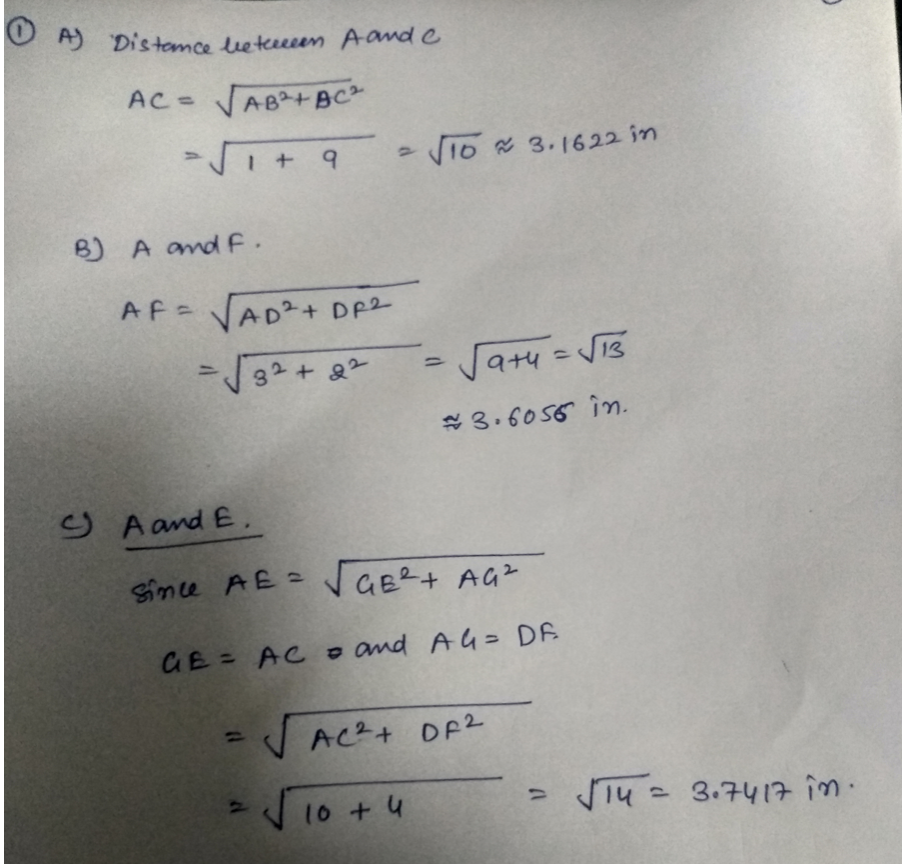 ① A) Distance between A and C
AC = √AB²+BC²
= √1 + 9 = √10 ≈ 3.1622 in
B) A and F.
AF = √AD²+ DF²
= √3² + 2² = √9+4 = √13
≈ 3.6056 in.
C) A and E.
Since AE = √GE²+ AG²
GE = AC and AG = DF
= √AC²+ DF²
= √10 + 4 = √14 = 3.7417 in.